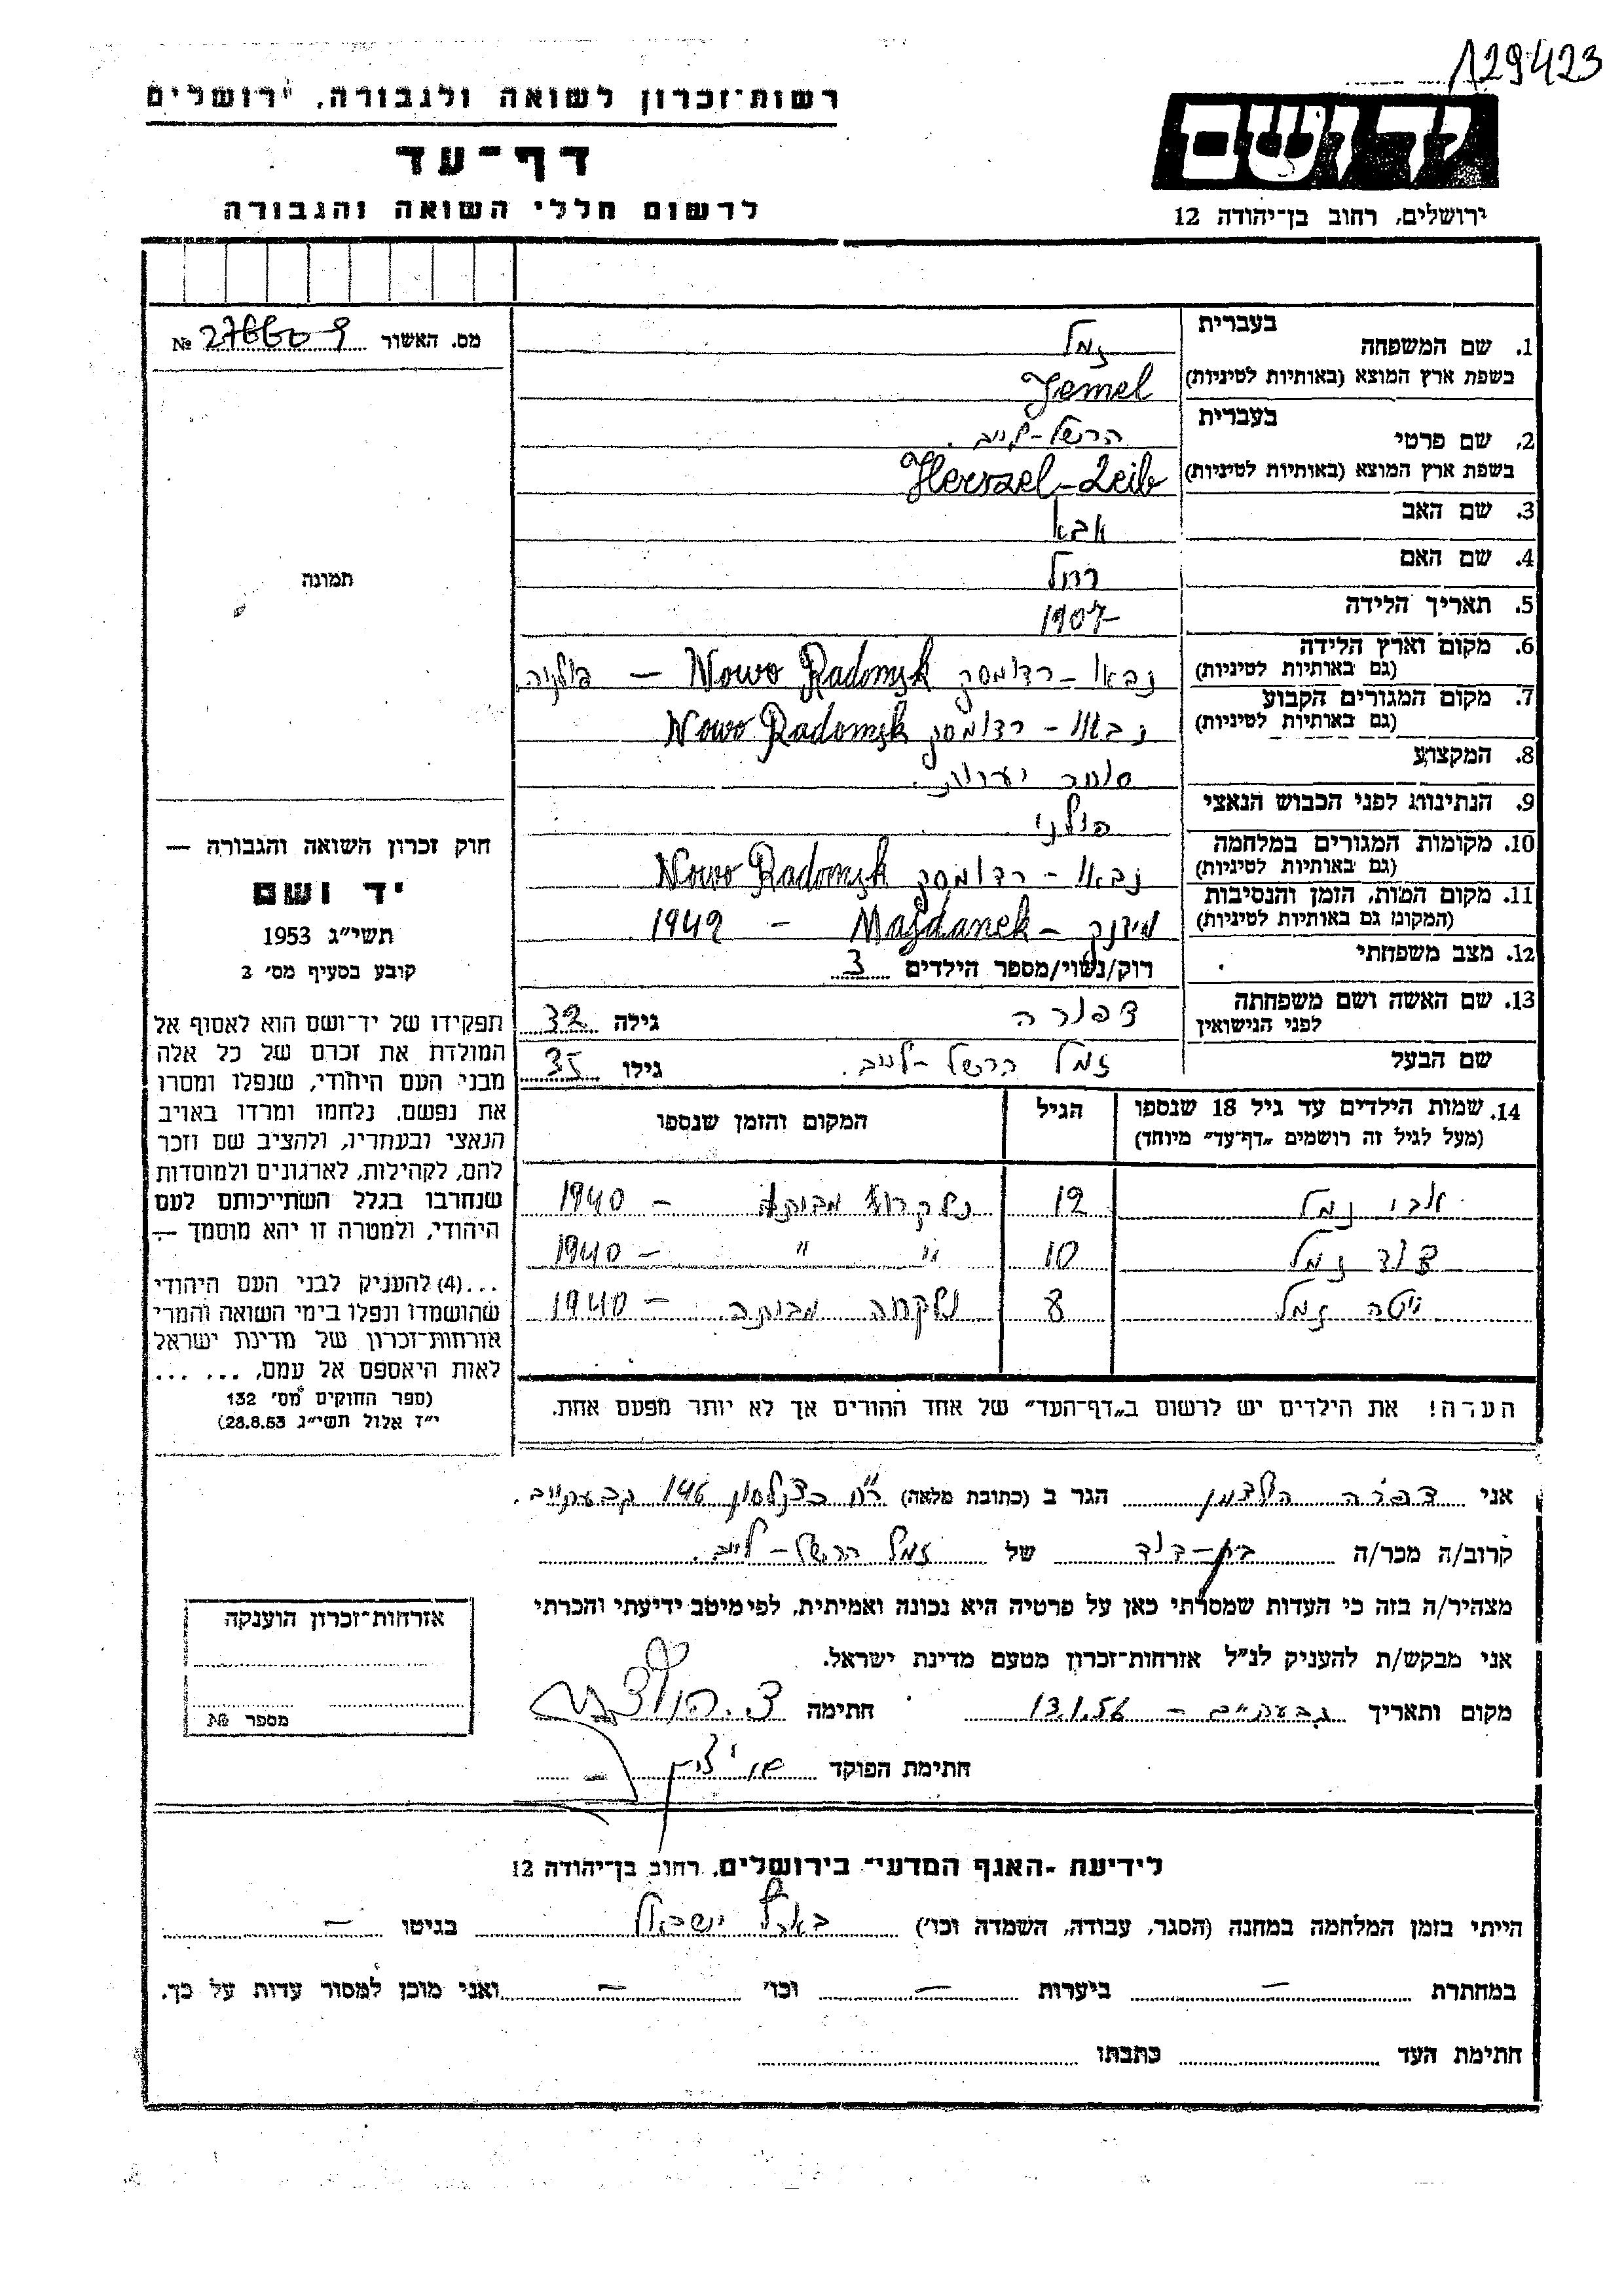 129423
יד ושם
ירושלים, רחוב בן־יהודה 12
רשות־זכרון לשואה ולגבורה, ירושלים
דף־עד
לרשום חללי השואה והגבורה
מס. האשור № 276609
תמונה
חוק זכרון השואה והגבורה —
יד ושם
תשי״ג 1953
קובע בסעיף מס׳ 2
תפקידו של יד־ושם הוא לאסוף אל
המולדת את זכרם של כל אלה
מבני העם היהודי, שנפלו ומסרו
את נפשם, נלחמו ומרדו באויב
הנאצי ובעוזריו, ולהציב שם וזכר
להם, לקהילות, לארגונים ולמוסדות
שנחרבו בגלל השתייכותם לעם
היהודי, ולמטרה זו יהא מוסמך —
...(4) להעניק לבני העם היהודי
שהושמדו ונפלו בימי השואה והמרי
אזרחות־זכרון של מדינת ישראל
לאות היאספם אל עמם, ... ...
(ספר החוקים מס׳ 132
י״ז אלול תשי״ג 28.8.53)
1. שם המשפחה בעברית זמל
בשפת ארץ המוצא (באותיות לטיניות) Zemel
2. שם פרטי בעברית הרשל-לייב.
בשפת ארץ המוצא (באותיות לטיניות) Herszel-Leib
3. שם האב אבא
4. שם האם רחל
5. תאריך הלידה 1907
6. מקום וארץ הלידה (גם באותיות לטיניות) נבאו-רדומסק Nowo Radomsk — פולניה.
7. מקום המגורים הקבוע (גם באותיות לטיניות) נבאו-רדומסק Nowo Radomsk
8. המקצוע סוחר יערות.
9. הנתינות לפני הכבוש הנאצי פולני
10. מקומות המגורים במלחמה (גם באותיות לטיניות) נבאו-רדומסק Nowo Radomsk
11. מקום המות, הזמן והנסיבות (המקום גם באותיות לטיניות) מידנק - Majdanek - 1942
12. מצב משפחתי רוק/נשוי/מספר הילדים 3
13. שם האשה ושם משפחתה לפני הנישואין צפורה גילה 32
שם הבעל זמל הרשל-לייב. גילו 35
14. שמות הילדים עד גיל 18 שנספו הגיל המקום והזמן שנספו
(מעל לגיל זה רושמים „דף־עד״ מיוחד)
זמל 12 1940
דוד זמל 10 ״ ״ — 1940
זמל 8 1940
הערה! את הילדים יש לרשום ב„דף־העד״ של אחד ההורים אך לא יותר מפעם אחת.
אני צפורה הולצמן הגר ב (כתובת מלאה) רח׳ כצנלסון 146 גבעתיים.
קרוב/ה מכר/ה בת-דוד של זמל הרשל-לייב.
מצהיר/ה בזה כי העדות שמסרתי כאן על פרטיה היא נכונה ואמיתית, לפי מיטב ידיעתי והכרתי
אני מבקש/ת להעניק לנ״ל אזרחות־זכרון מטעם מדינת ישראל.
מקום ותאריך גבעתיים - 13.1.56 חתימה צ. הולצמן
חתימת הפוקד
אזרחות־זכרון הוענקה
מספר №
לידיעת ״האגף המדעי״ בירושלים, רחוב בן־יהודה 12
הייתי בזמן המלחמה במחנה (הסגר, עבודה, השמדה וכו׳) בארץ ישראל בגיטו —
במחתרת — ביערות — וכו׳ — ואני מוכן למסור עדות על כך.
חתימת העד כתבתו